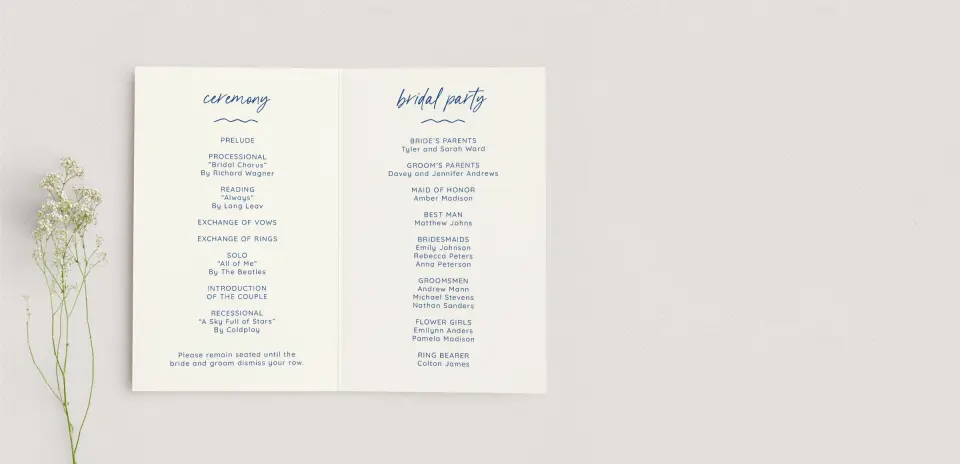 ceremony
PRELUDE
PROCESSIONAL
"Bridal Chorus"
By Richard Wagner
READING
"Always"
By Lang Leav
EXCHANGE OF VOWS
EXCHANGE OF RINGS
SOLO
"All of Me"
By The Beatles
INTRODUCTION
OF THE COUPLE
RECESSIONAL
"A Sky Full of Stars"
By Coldplay
Please remain seated until the
bride and groom dismiss your row.
bridal party
BRIDE'S PARENTS
Tyler and Sarah Ward
GROOM'S PARENTS
Davey and Jennifer Andrews
MAID OF HONOR
Amber Madison
BEST MAN
Matthew Johns
BRIDESMAIDS
Emily Johnson
Rebecca Peters
Anna Peterson
GROOMSMEN
Andrew Mann
Michael Stevens
Nathan Sanders
FLOWER GIRLS
Emilynn Anders
Pamela Madison
RING BEARER
Colton James